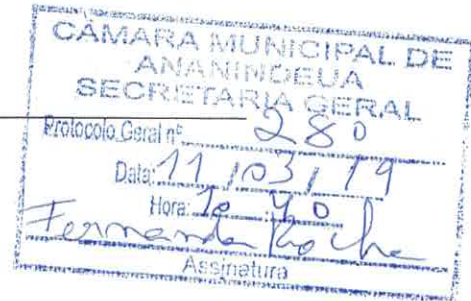 CÂMARA MUNICIPAL DE
ANANINDEUA
SECRETARIA GERAL
Protocolo Geral nº 280
Data: 11/03/19
Hora: 10 40
Fernanda Rocha
Assinatura